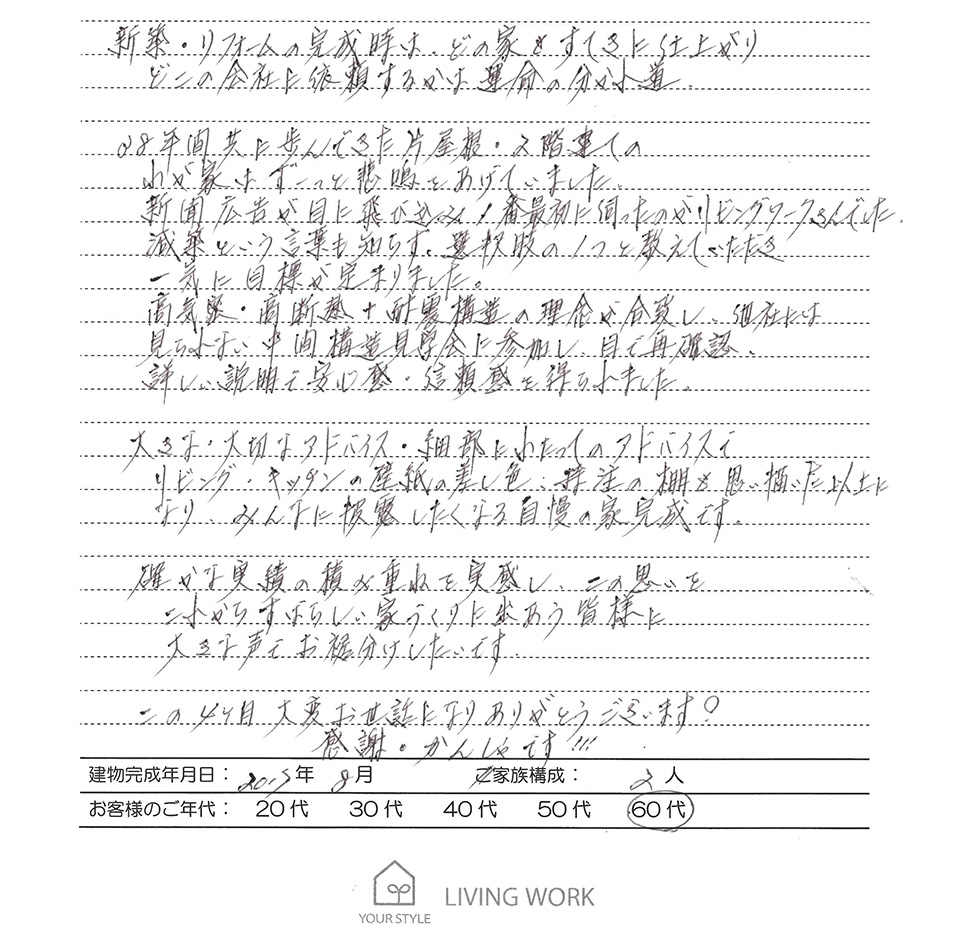 新築・リフォームの完成時は、どの家もすてきに仕上がり
どこの会社に依頼するかは運命の分かれ道。
28年間共に歩んできた片屋根・2階建ての
わが家はずーっと悲鳴をあげていました。
新聞広告が目に飛び込み1番最初に伺ったのがリビングワークさんでした。
減築という言葉も知らず、選択肢の1つと教えていただき
一気に目標が定まりました。
高気密・高断熱+耐震構造の理念が合致し、他社には
見られない中間構造見学会に参加し、目で再確認、
詳しい説明で安心感・信頼感を得られました。
大きな・大切なアドバイス・細部にわたってのアドバイスで
リビング・キッチンの壁紙の差し色、特注の棚も思い描いた以上に
なり、みんなに披露したくなる自慢の家完成です。
確かな実績の積み重ねを実感し、この思いを
これからすばらしい家づくりに出あう皆様に
大きな声でお裾分けしたいです。
この4ヶ月大変お世話になりありがとうございます!
感謝・かんしゃです!!!
建物完成年月日: 年 8月 ご家族構成: 2人
お客様のご年代: 20代 30代 40代 50代 60代
YOUR STYLE LIVING WORK